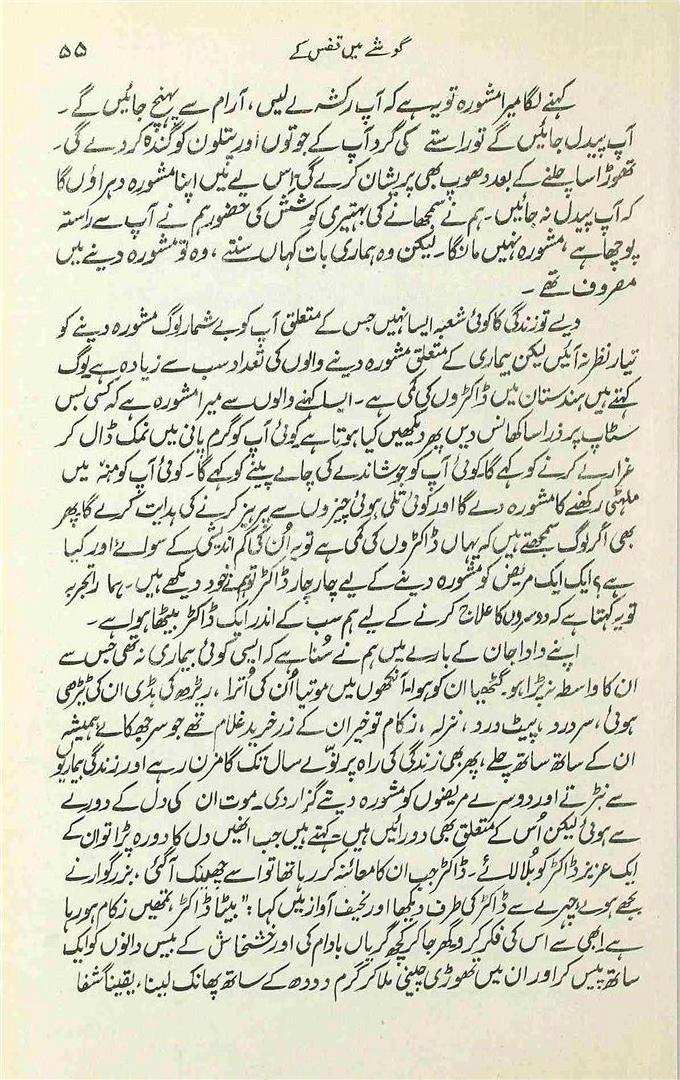 گوشے میں قفس کے ۵۵
کہنے لگا میرا مشورہ تو یہ ہے کہ آپ رکشہ لے لیں، آرام سے پہنچ جائیں گے۔
آپ پیدل جائیں گے تو راستے کی گرد آپ کے جوتوں اور پتلون کو گندہ کر دے گی۔
تھوڑا سا چلنے کے بعد دھوپ بھی پریشان کرے گی اس لیے میں اپنا مشورہ دہراؤں گا
کہ آپ پیدل نہ جائیں۔ ہم نے سمجھانے کی بہتیری کوشش کی حضور ہم نے آپ سے راستہ
پوچھا ہے، مشورہ نہیں مانگا۔ لیکن وہ ہماری بات کہاں سنتے، وہ تو مشورہ دینے میں
مصروف تھے۔
ویسے تو زندگی کا کوئی شعبہ ایسا نہیں جس کے متعلق آپ کو بے شمار لوگ مشورہ دینے کو
تیار نظر نہ آئیں لیکن بیماری کے متعلق مشورہ دینے والوں کی تعداد سب سے زیادہ ہے لوگ
کہتے ہیں ہندستان میں ڈاکٹروں کی کمی ہے۔ ایسا کہنے والوں سے میرا مشورہ ہے کہ کسی بس
سٹاپ پر ذرا سا کھانس دیں پھر دیکھیں کیا ہوتا ہے کوئی آپ کو گرم پانی میں نمک ڈال کر
غرارے کرنے کو کہے گا۔ کوئی آپ کو جوشاندے کی چاے پینے کو کہے گا۔ کوئی آپ کو منہ میں
ملہٹی رکھنے کا مشورہ دے گا اور کوئی تلی ہوئی چیزوں سے پرہیز کرنے کی ہدایت کرے گا۔ پھر
بھی اگر لوگ سمجھتے ہیں کہ یہاں ڈاکٹروں کی کمی ہے تو یہ اُن کی کم اندیشی کے سوائے اور کیا
ہے؟ ایک ایک مریض کو مشورہ دینے کے لیے چار چار ڈاکٹر تو ہم نے خود دیکھے ہیں۔ ہمارا تجربہ
تو یہ کہتا ہے کہ دوسروں کا علاج کرنے کے لیے ہم سب کے اندر ایک ڈاکٹر بیٹھا ہوا ہے۔
اپنے دادا جان کے بارے میں ہم نے سُنا ہے کہ ایسی کوئی بیماری نہ تھی جس سے
ان کا واسطہ نہ پڑا ہو۔ گٹھیا ان کو ہوا، آنکھوں میں موتیا اُن کی اُترا، ریڑھ کی ہڈی ان کی ٹیڑھی
ہوئی، سردرد، پیٹ درد، نزلہ، زکام تو خیر ان کے زر خرید غلام تھے جو سر جھکائے ہمیشہ
ان کے ساتھ ساتھ چلے، پھر بھی زندگی کی راہ پر نوّے سال تک گامزن رہے اور زندگی بیماریوں
سے نبٹرتے اور دوسرے مریضوں کو مشورہ دیتے گزار دی۔ موت ان کی دل کے دورے
سے ہوئی لیکن اُس کے متعلق بھی دو رائیں ہیں۔ کہتے ہیں جب انھیں دل کا دورہ پڑا تو ان کے
ایک عزیز ڈاکٹر کو بُلا لائے۔ ڈاکٹر جب ان کا معائنہ کر رہا تھا تو اسے چھینک آگئی، بزرگوار نے
بجھے ہوے چہرے سے ڈاکٹر کی طرف دیکھا اور نحیف آواز میں کہا: "بیٹا ڈاکٹر، تمھیں زکام ہو رہا
ہے ابھی سے اس کی فکر کرو گھر جا کر کچھ گریاں بادام کی اور خشخاش کے بیس دانوں کو ایک
ساتھ پیس کر اور ان میں تھوڑی چینی ملا کر گرم دودھ کے ساتھ پھانک لینا، یقیناً شفا